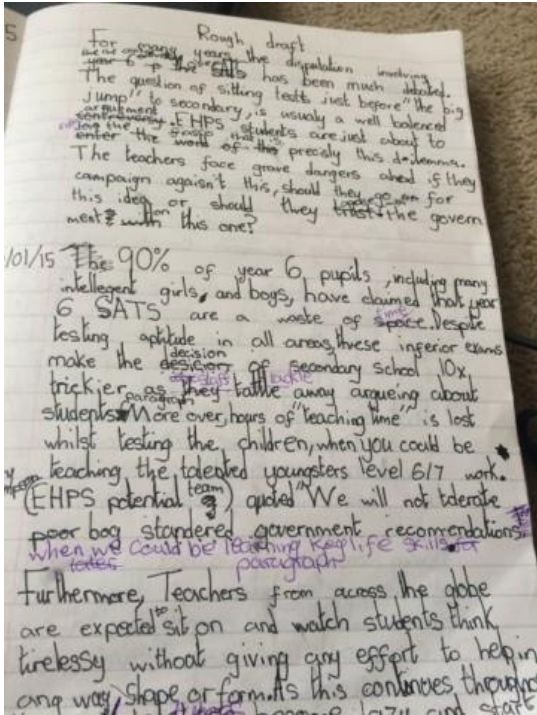 5
Rough draft
For many years the disputation involving
year 6 SATS has been much debated.
The question of sitting tests just before "the big
jump" to secondary, is usualy a well balenced
argument
controversy. EHPS students are just about to
enter the of precisly this delemma.
The teachers face grave dangers ahed if they
campaign agaisn't this, should they go on for
this idea or should they trust the govern
ment on this one?
/01/15 The 90% of year 6 pupils, including many
intellegent girls, and boys, have claimed that year
6 SATS are a waste of space. Despite
time
testing aptitude in all areas, these inferior exams
decision
make the desicion of secondary school 10x
staff tackle
trickier as they tattle away argueing about
paragraph
students. More over, hours of "teaching time" is lost
whilst testing the children, when you could be
teaching the talented youngsters level 6/7 work.
team
(EHPS potential ) quoted "We will not tolerate
poor bog standered government recomendations
when we could be teaching key life skills
paragraph
Furthermore, Teachers from across the globe
to
are expected sit on and watch students think
tirelessy without giving any effort to help in
any way, shape or form. As this continues througho
become lazy and start